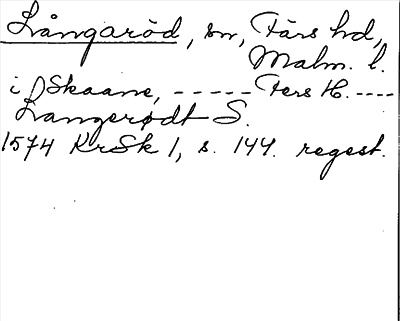 Långaröd, sn, Färs hd,
Malm. l.
i Skaane, ----- Fers H. ----
Langerødt S.
1574 KrSk 1, s. 144. regest.